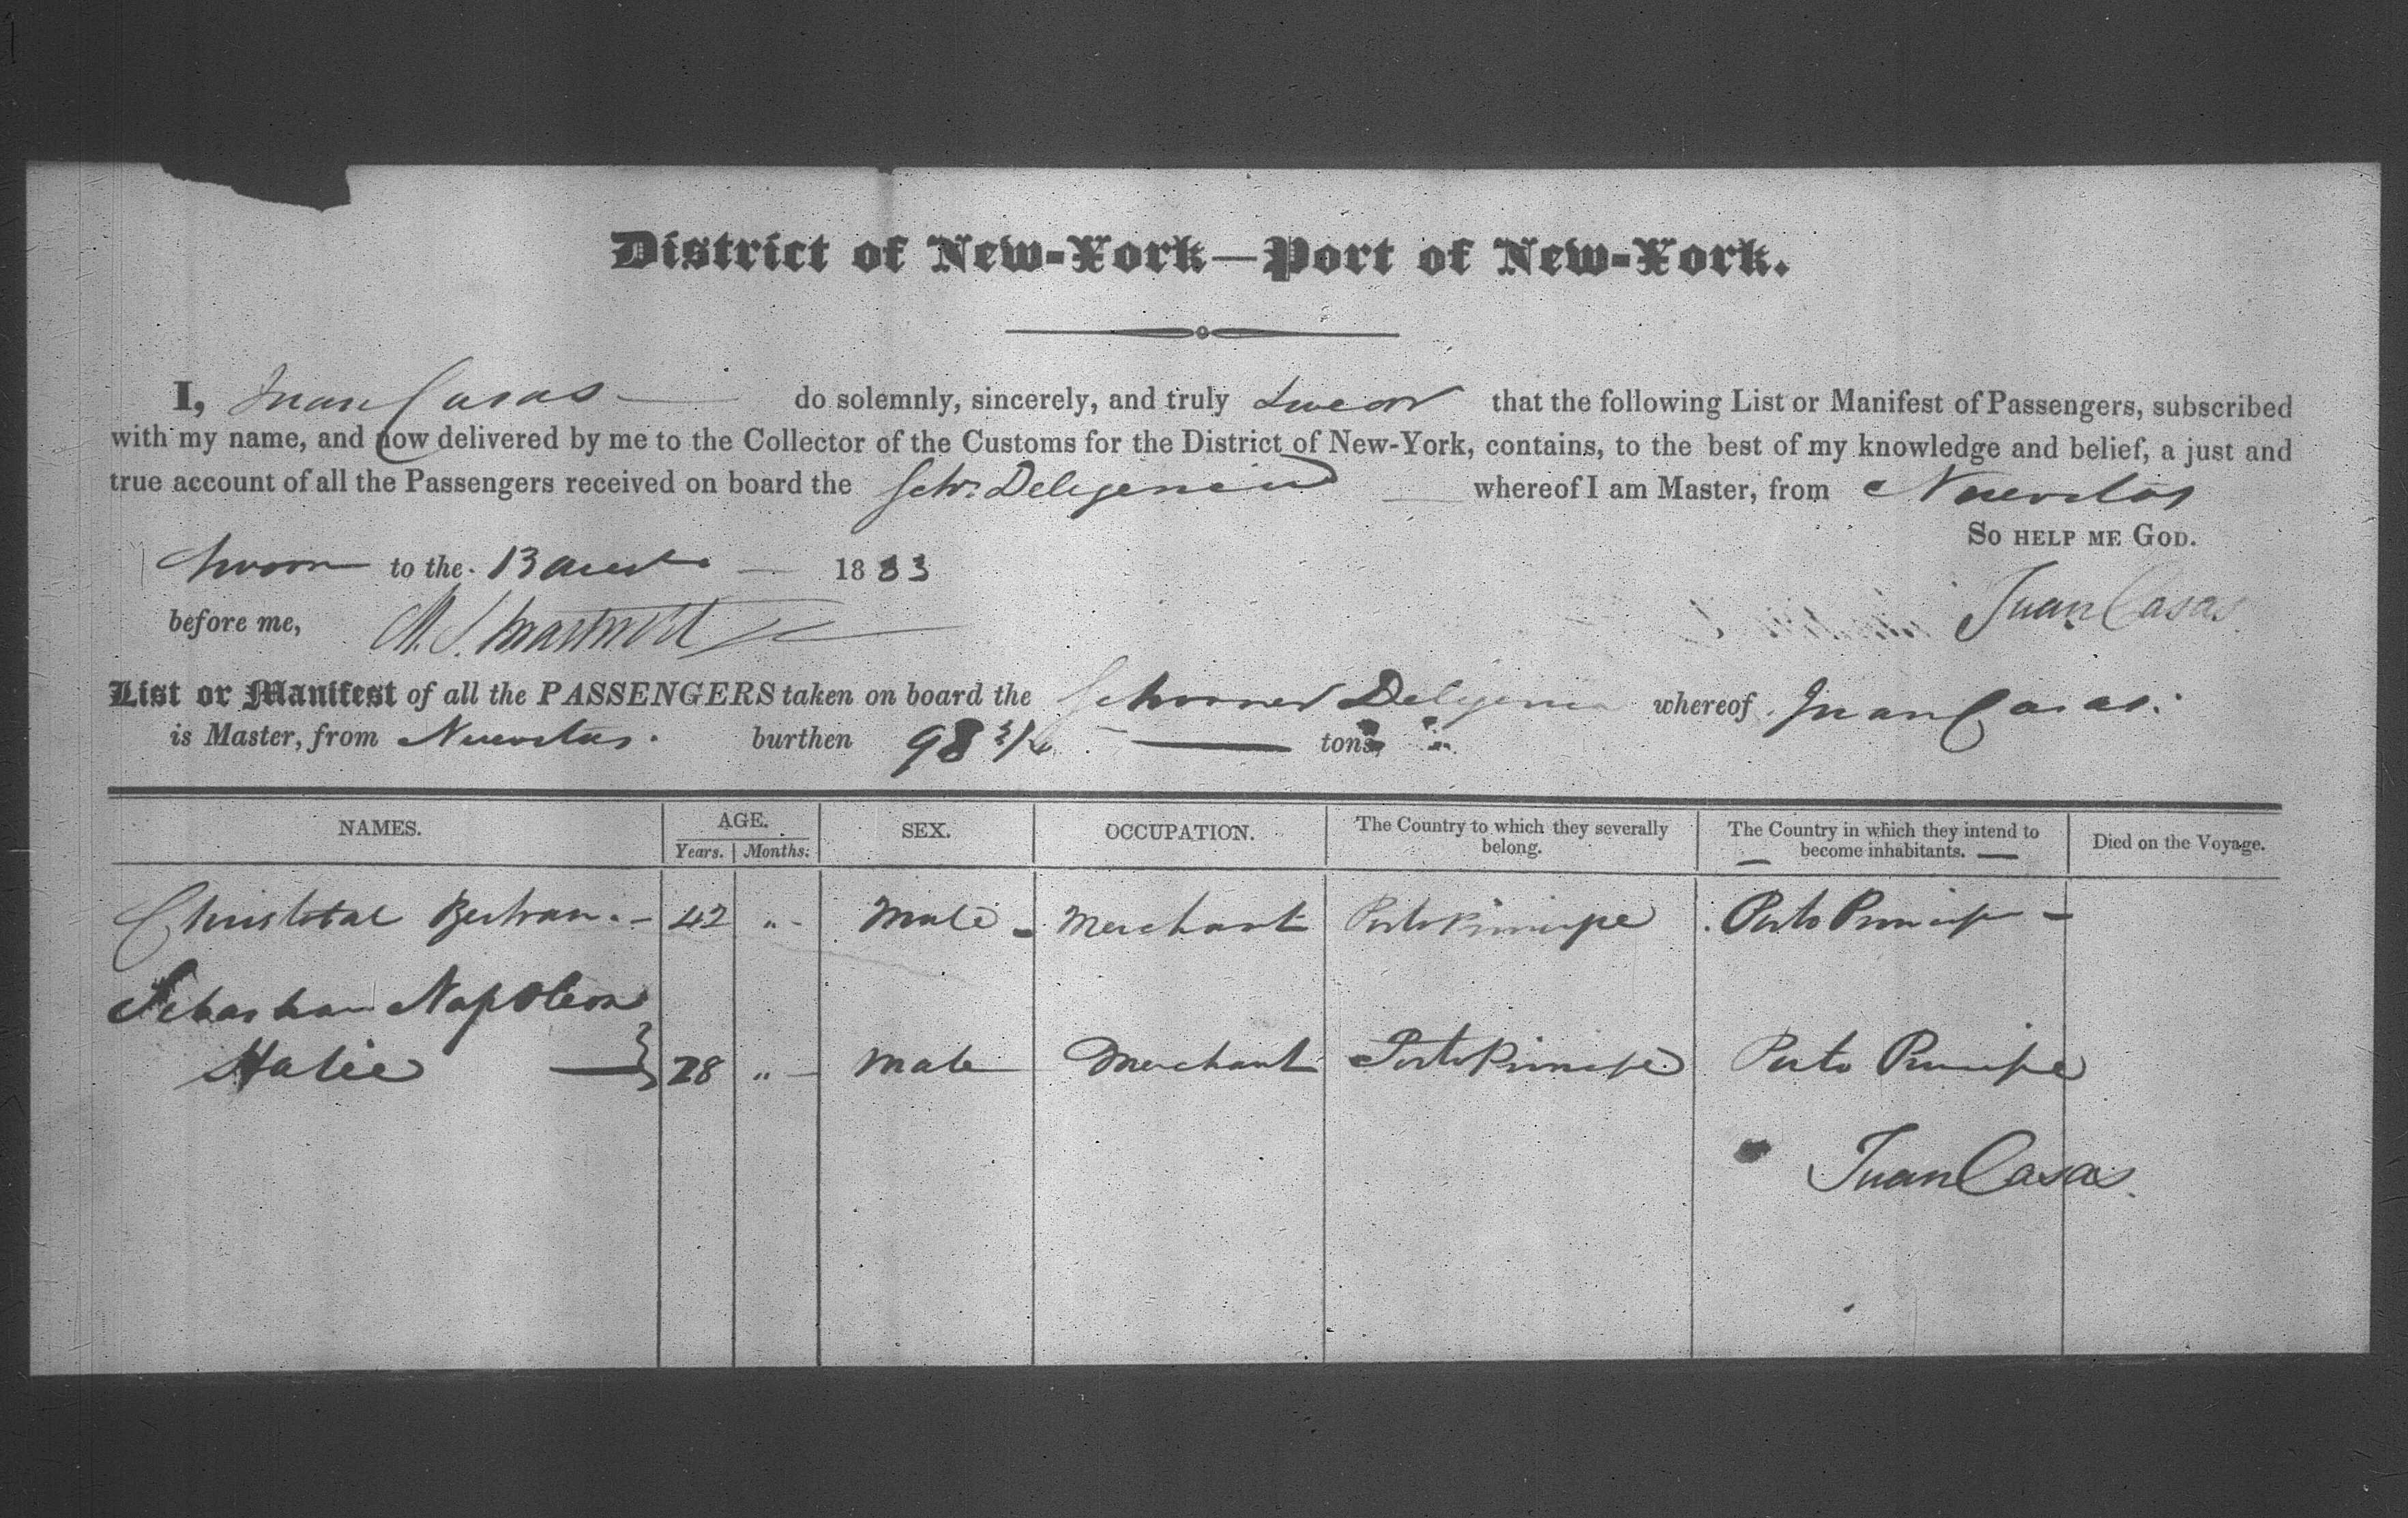 District of New-York—Port of New-York.
I, Juan Casas do solemnly, sincerely, and truly swear that the following List or Manifest of Passengers, subscribed
with my name, and now delivered by me to the Collector of the Customs for the District of New-York, contains, to the best of my knowledge and belief, a just and
true account of all the Passengers received on board the Schr. Deligencia whereof I am Master, from Nuevitas
So help me God.
Sworn to the 13 1833
before me, Juan Casas
List or Manifest of all the PASSENGERS taken on board the Schooner Deligencia whereof Juan Casas.
is Master, from Nuevitas. burthen 98 tons,
NAMES. AGE. Years. Months. SEX. OCCUPATION. The Country to which they severally belong. The Country in which they intend to become inhabitants. Died on the Voyage.
Christobal Bertran. 42 " Male Merchant Porto Principe Porto Principe
Sebastian Napoleon
Halie 28 " Male Merchant Porto Principe Porto Principe
Juan Casas